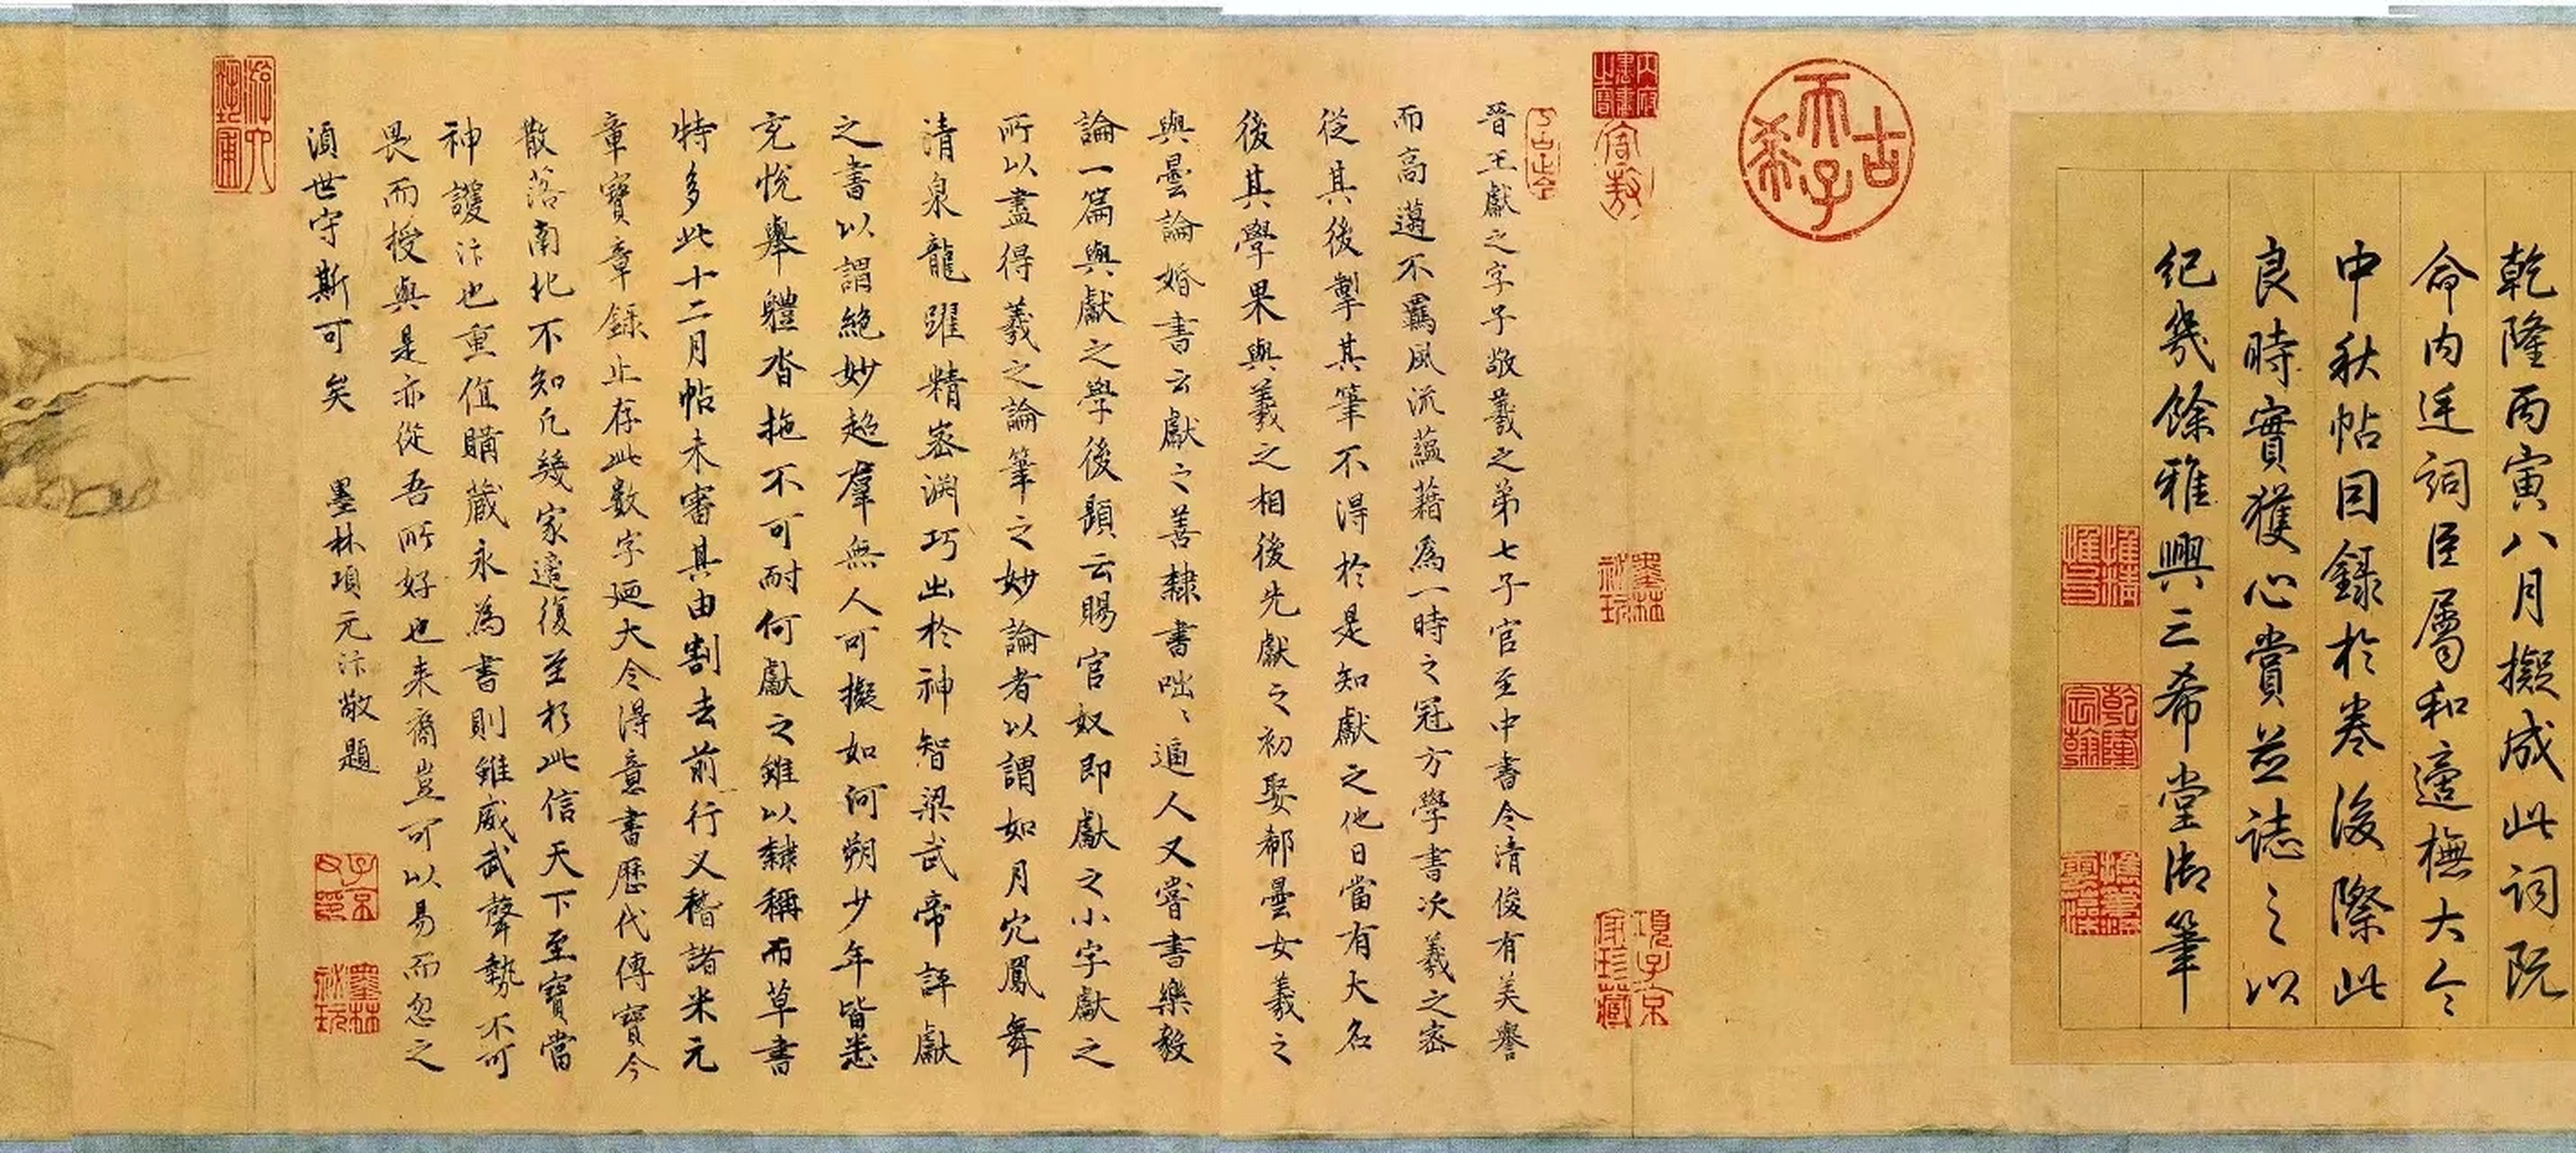 乾隆丙寅八月擬成此詞既
命内廷詞臣屬和適橅大令
中秋帖因錄於卷後際此
良時實獲心賞並誌之以
紀幾餘雅興三希堂御筆
古希天子
晉王獻之字子敬羲之第七子官至中書令清俊有美譽
而高邁不羈風流蘊藉爲一時之冠方學書次羲之密
從其後掣其筆不得於是知獻之他日當有大名
後其學果與羲之相後先獻之初娶郗曇女羲之
與曇論婚書云獻之善隸書咄咄逼人又嘗書樂毅
論一篇與獻之學後題云賜官奴即獻之小字獻之
所以盡得羲之論筆之妙論者以謂如月穴鳳舞
清泉龍躍精密淵巧出於神智梁武帝評獻
之書以謂絶妙超羣無人可擬如河朔少年皆悉
充悅舉體沓拖不可耐何獻之雖以隸稱而草書
特多此十二月帖未審其由割去前行又稽諸米元
章寶章錄止存此數字廼大令得意書歷代傳寶今
散落南北不知凡幾家適復至於此信天下至寶當
神護汴也重值購藏永為書則雖威武聲勢不可
畏而授與是亦從吾所好也来裔豈可以易而忽之
須世守斯可矣　墨林項元汴敬題